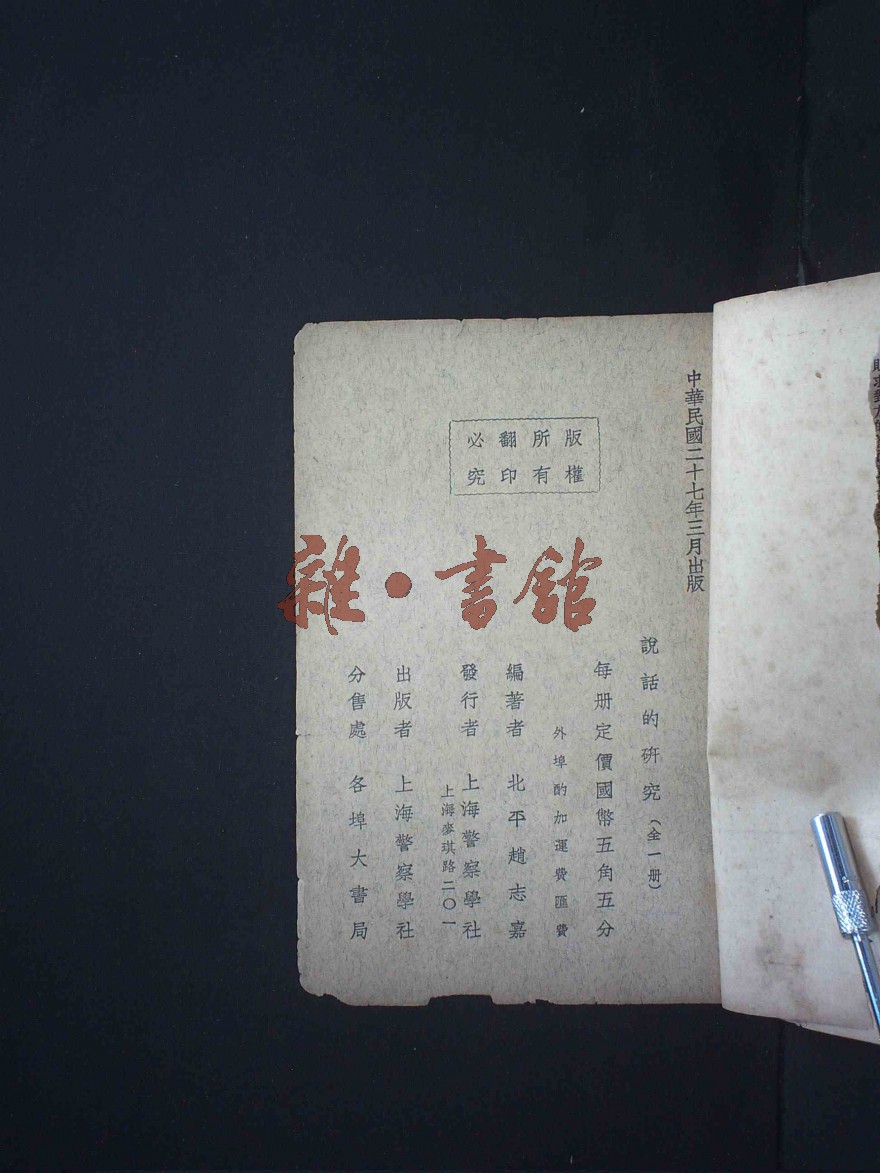 中華民國二十七年三月出版
版權
所有
翻印
必究
說話的硏究（全一册）
每册定價國幣五角五分
外埠酌加運費匯費
編著者 北平趙志嘉
發行者 上海警察學社
上海麥琪路二〇一
出版者 上海警察學社
分售處 各埠大書局
雜·書館